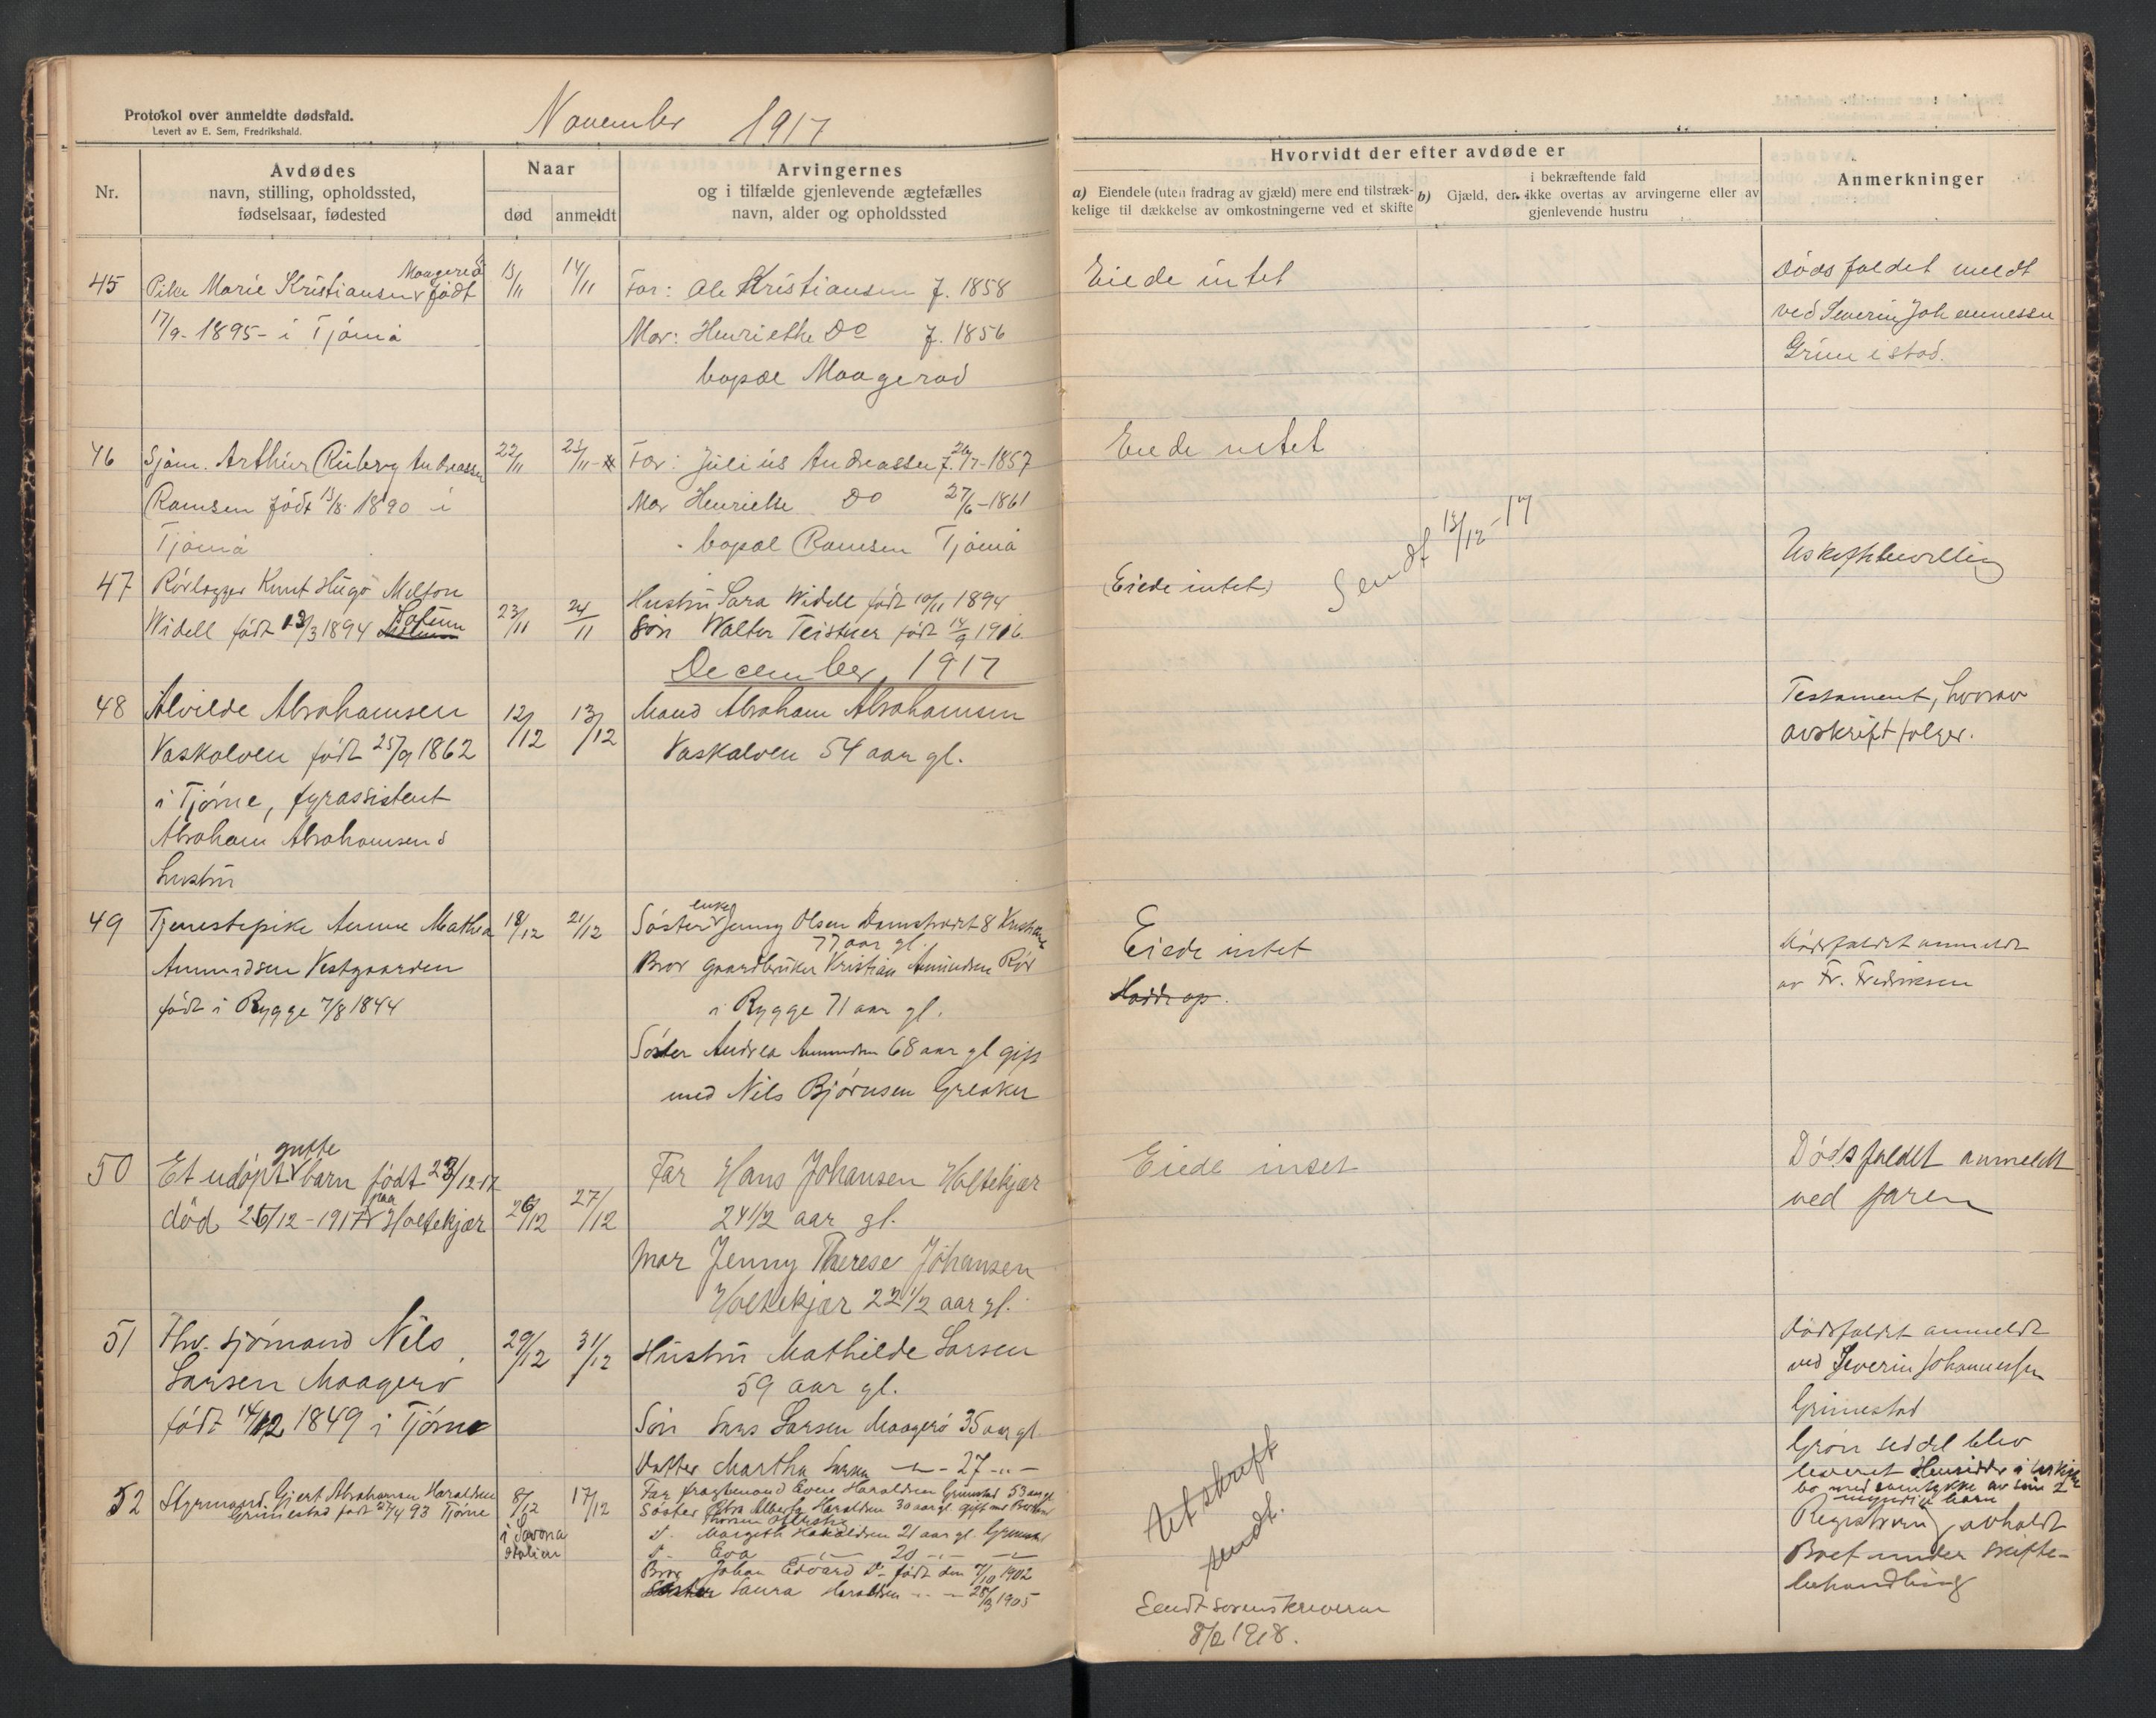 Protokol over anmeldte dødsfald.
Levert av E. Sem, Fredrikshald.
November 1917
Nr.
Avdødes
navn, stilling, opholdssted,
fødselsaar, fødested
Naar
død
anmeldt
Arvingernes
og i tilfælde gjenlevende ægtefælles
navn, alder og opholdssted
Hvorvidt der efter avdøde er
a) Eiendele (uten fradrag av gjæld) mere end tilstræk-
kelige til dækkelse av omkostningerne ved et skifte
i bekræftende fald
b) Gjæld, der ikke overtas av arvingerne eller av
gjenlevende hustru
Anmerkninger
45
Maagerø
Pike Marie Kristiansen født
17/9-1895- i Tjømø
13/11
14/11
Far: Ole Kristiansen f. 1858
Mor: Henriette Do f. 1856
bopæl Maagerød
Eiede intet
Dødsfaldet meldt
ved Severin Johannessen
Grimestad.
46
Sjøm. Arthur Ruberg Andreassen
Ramsen født 13/8 1890 i
Tjømø
22/11
Far: Julius Andreassen f. 26/7-1857
Mor Henriette Do 27/6-1861
bopæl Ramsen Tjømø
Eiede intet
47
Rørlægger Knut Hugo Milton
Widell født 13/3 1894
23/11
24/11
Hustru Sara Widell født 10/11 1894
Søn Walter Teistner født 14/9 1916.
(Eiede intet)
Sendt 13/12-17
Uskiftebevilling
December 1917
48
Alvilde Abrahamsen
Vaskalven født 25/9 1862
i Tjøme, fyrassistent
Abraham Abrahamsens
hustru
12/12
13/12
Mand Abraham Abrahamsen
Vaskalven 54 aar gl.
Testament, hvorav
avskrift følger.
49
Tjenestepike Anne Mathea
Amundsen Vestgaarden
født i Rygge 7/8 1844
18/12
21/12
enke
Søster Jenny Olsen Damstrædet 8 Kristiania
77 aar gl.
Bror gaardbruker Kristian Amundsen Rør
i Rygge 71 aar gl.
Søster Andrea Amundsen 68 aar gl gift
med Nils Bjørnsen Greaker
Eiede intet
Dødsfaldet anmeldt
av Fr. Fredriksen
50
gutte
Et udøpt barn født 23/12-17
paa
død 26/12-1917 Holtekjær
26/12
27/12
Far Hans Johansen Holtekjær
24 1/2 aar gl.
Mor Jenny Therese Johansen
Holtekjær 22 1/2 aar gl.
Eiede intet
Dødsfaldet anmeldt
ved faren
51
Fhv. sjømand Nils
Larsen Maagerø
født 14/12 1849 i Tjøme
29/12
31/12
Hustru Mathilde Larsen
59 aar gl.
Søn Lars Larsen Maagerø 35 aar gl.
Datter Martha Larsen -"- 27 -"-
Dødsfaldet anmeldt
ved Severin Johannessen
Grimestad
Grøn seddel blev
leveret Hensidder i uskiftet
bo med samtykke av sine 2
myndige barn
52
Styrmand Gjert Abrahamsen Haraldsen
Grimestad født 27/4 93 Tjøme
8/12
i Savona
Italien
17/12
Far fragtemand Even Haraldsen Grimestad 53 aar gl.
Søster Petra Alberta Haraldsen 30 aar gl. gift med
d. Margith Haraldsen 21 aar gl. Grimestad
d. Eva -"- 20 -"- -"-
Bror Johan Edvard Do født den 7/10 1902
Søster Laura Haraldsen -"- 28/3 1905
Utskrift
sendt.
Sendt sorenskriveren
8/2 1918.
Registrering avholdt
Boet under skifte-
behandling